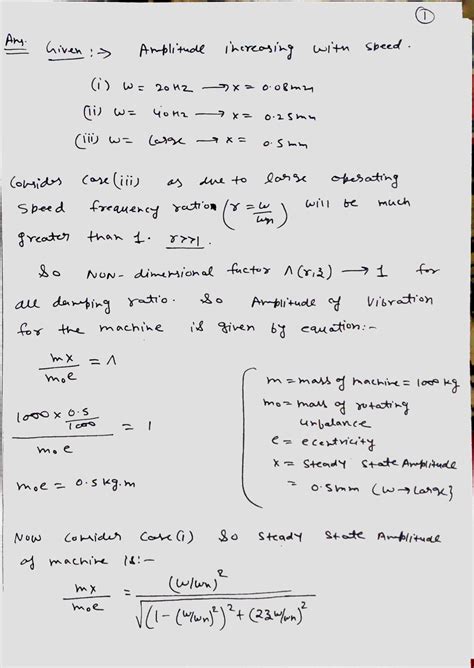 1
Ans. Given :→ Amplitude increasing with speed.
(i) ω = 20Hz → x = 0.08mm
(ii) ω = 40Hz → x = 0.25mm
(iii) ω = Large → x = 0.5mm
Consider Case (iii) as due to large operating
speed frequency ratio (r = ω/ωn) will be much
greater than 1. r>>1
So NON-dimensional factor Λ(r,ξ) → 1 for
all damping ratio. So Amplitude of Vibration
for the machine is given by equation:-
mx/m₀e = Λ
m = mass of machine = 1000 kg
m₀ = mass of rotating
unbalance
e = eccentricity
x = Steady State Amplitude
= 0.5mm (ω→Large}
(1000 × 0.5/1000)/m₀e = 1
m₀e = 0.5 kg.m
Now Consider Case (i) So Steady State Amplitude
of machine is:-
mx/m₀e = (ω/ωn)²/√((1-(ω/ωn)²)² + (2ξω/ωn)²)